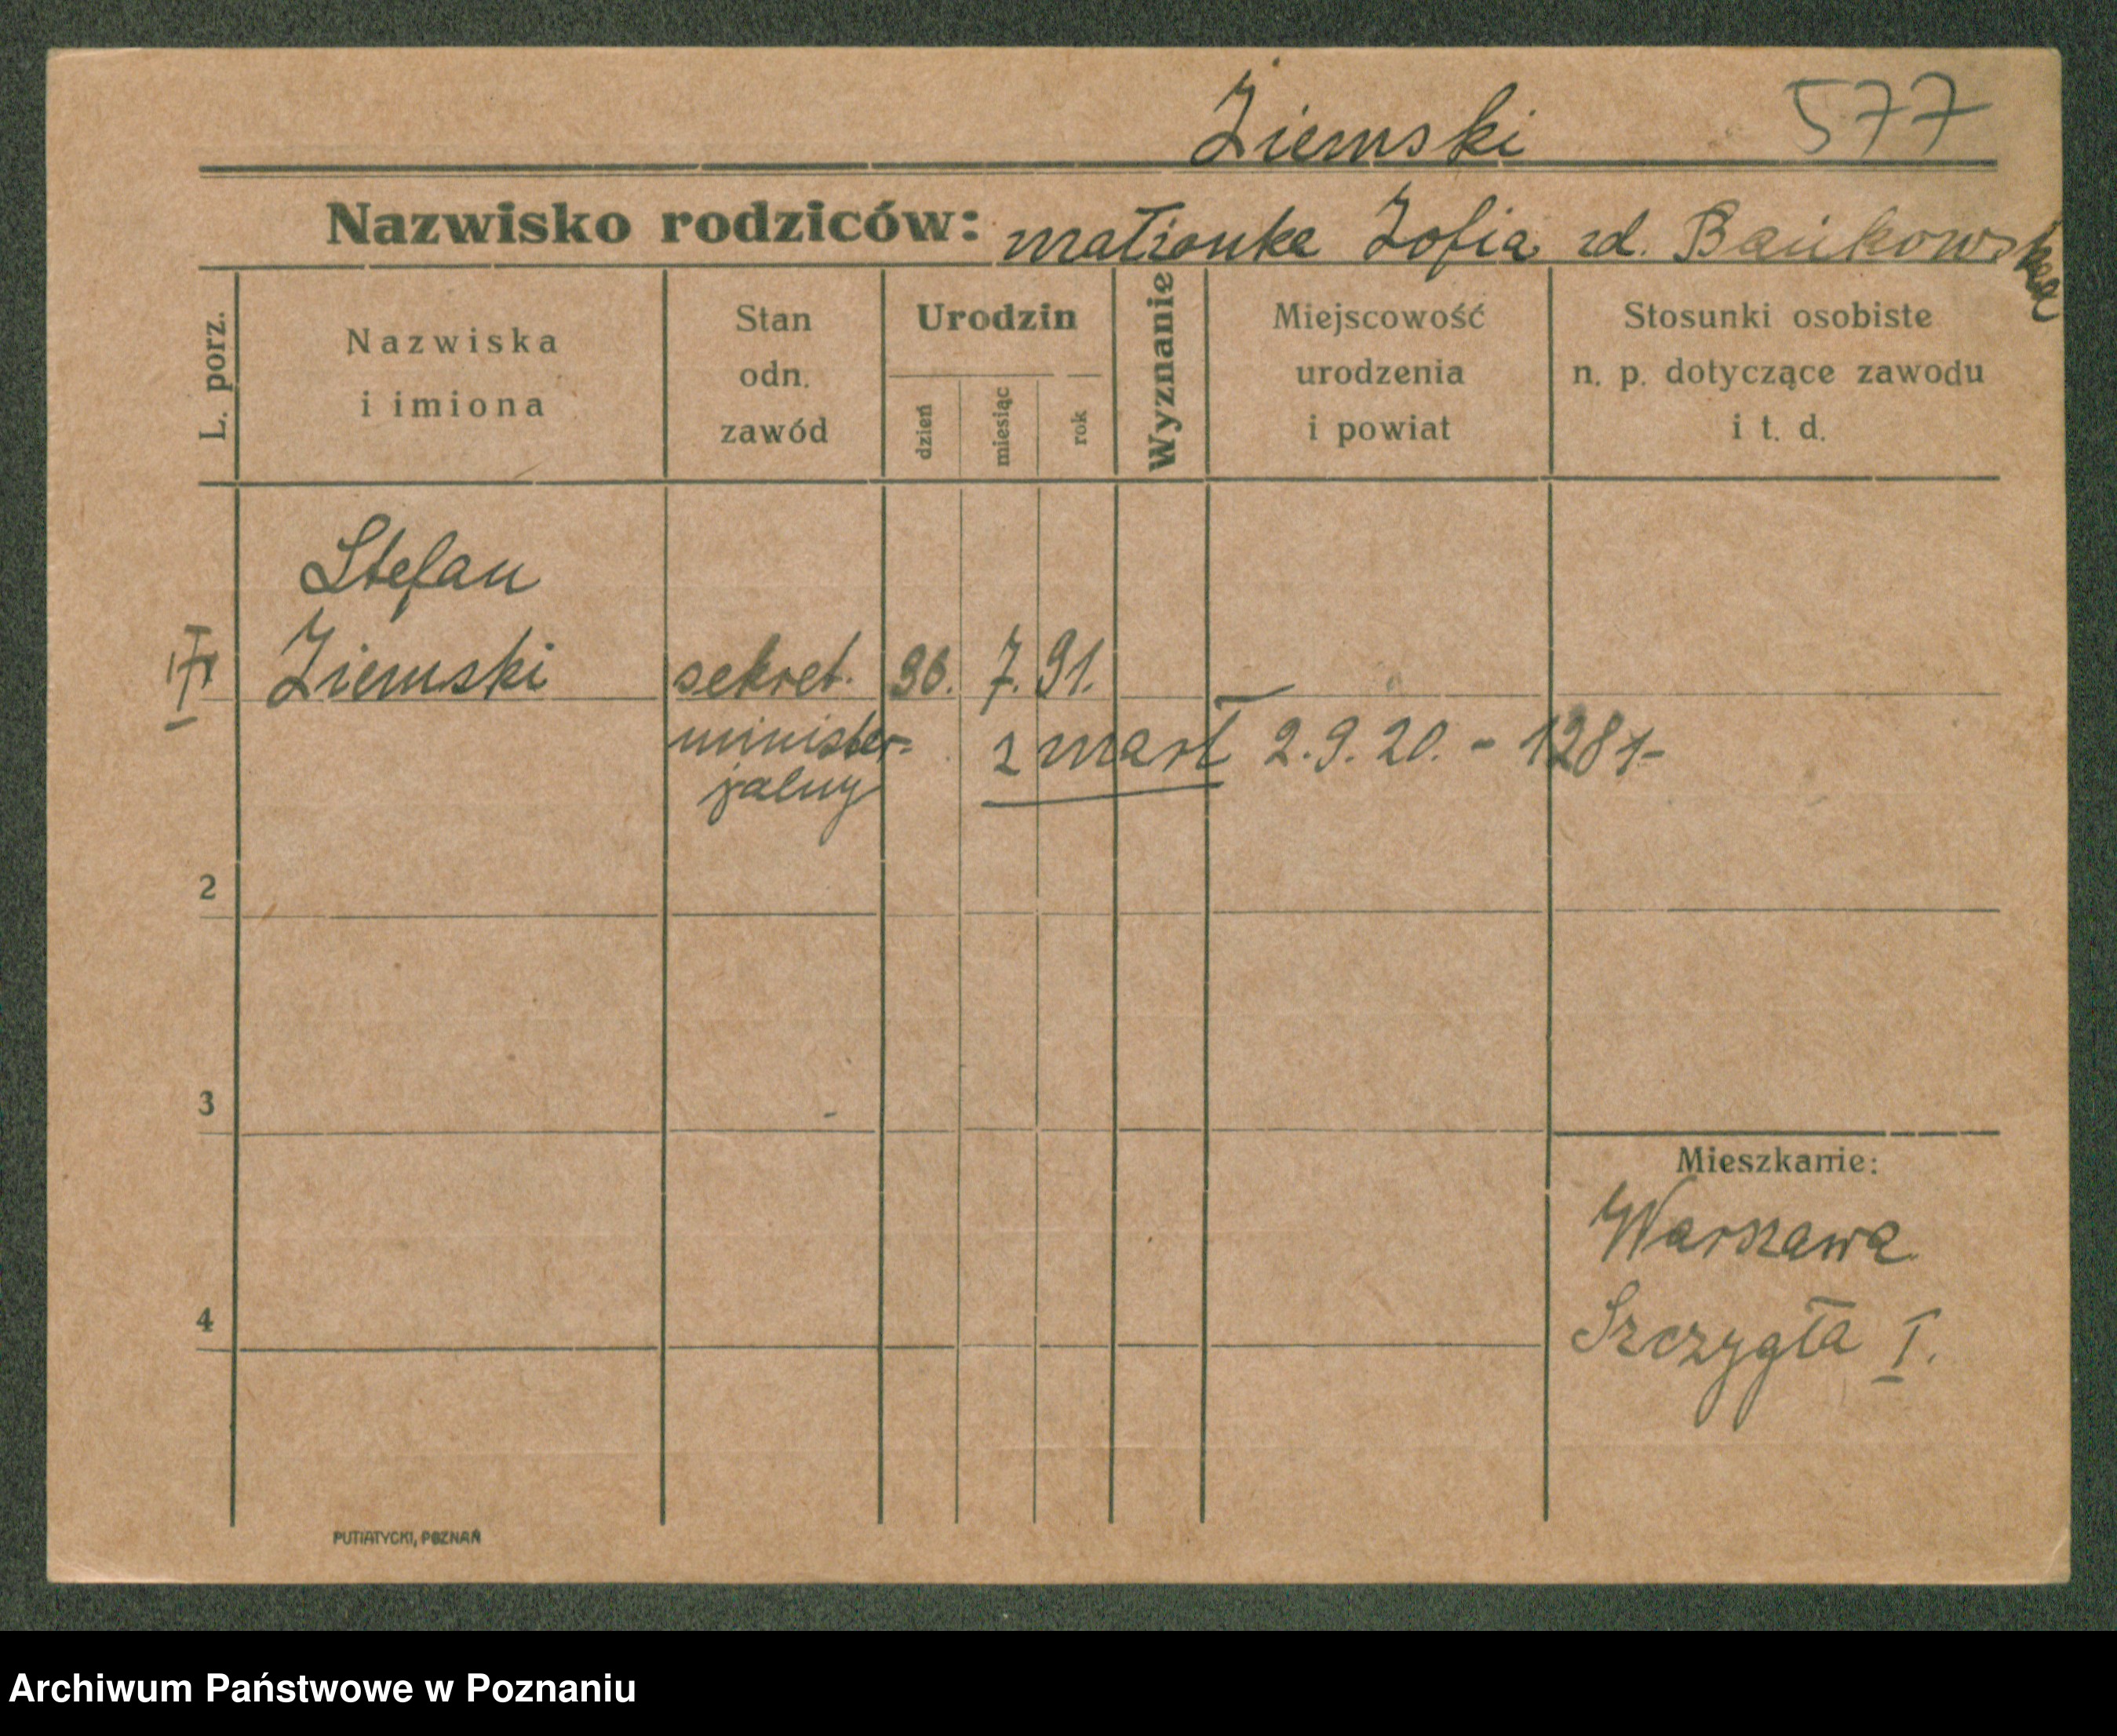 Ziemski 577
Nazwisko rodziców: małżonka Zofia zd. Bańkowska
L. porz.
Nazwiska
i imiona
Stan
odn.
zawód
Urodzin
dzień
miesiąc
rok
Wyznanie
Miejscowość
urodzenia
i powiat
Stosunki osobiste
n. p. dotyczące zawodu
i t. d.
Stefan
Ziemski sekret. 7. 91.
minister-
jalny
zmarł 2.9.20.
2
3
Mieszkanie:
Warszawa
4
Szczygła 1.
PUTIATYCKI, POZNAŃ
Archiwum Państwowe w Poznaniu